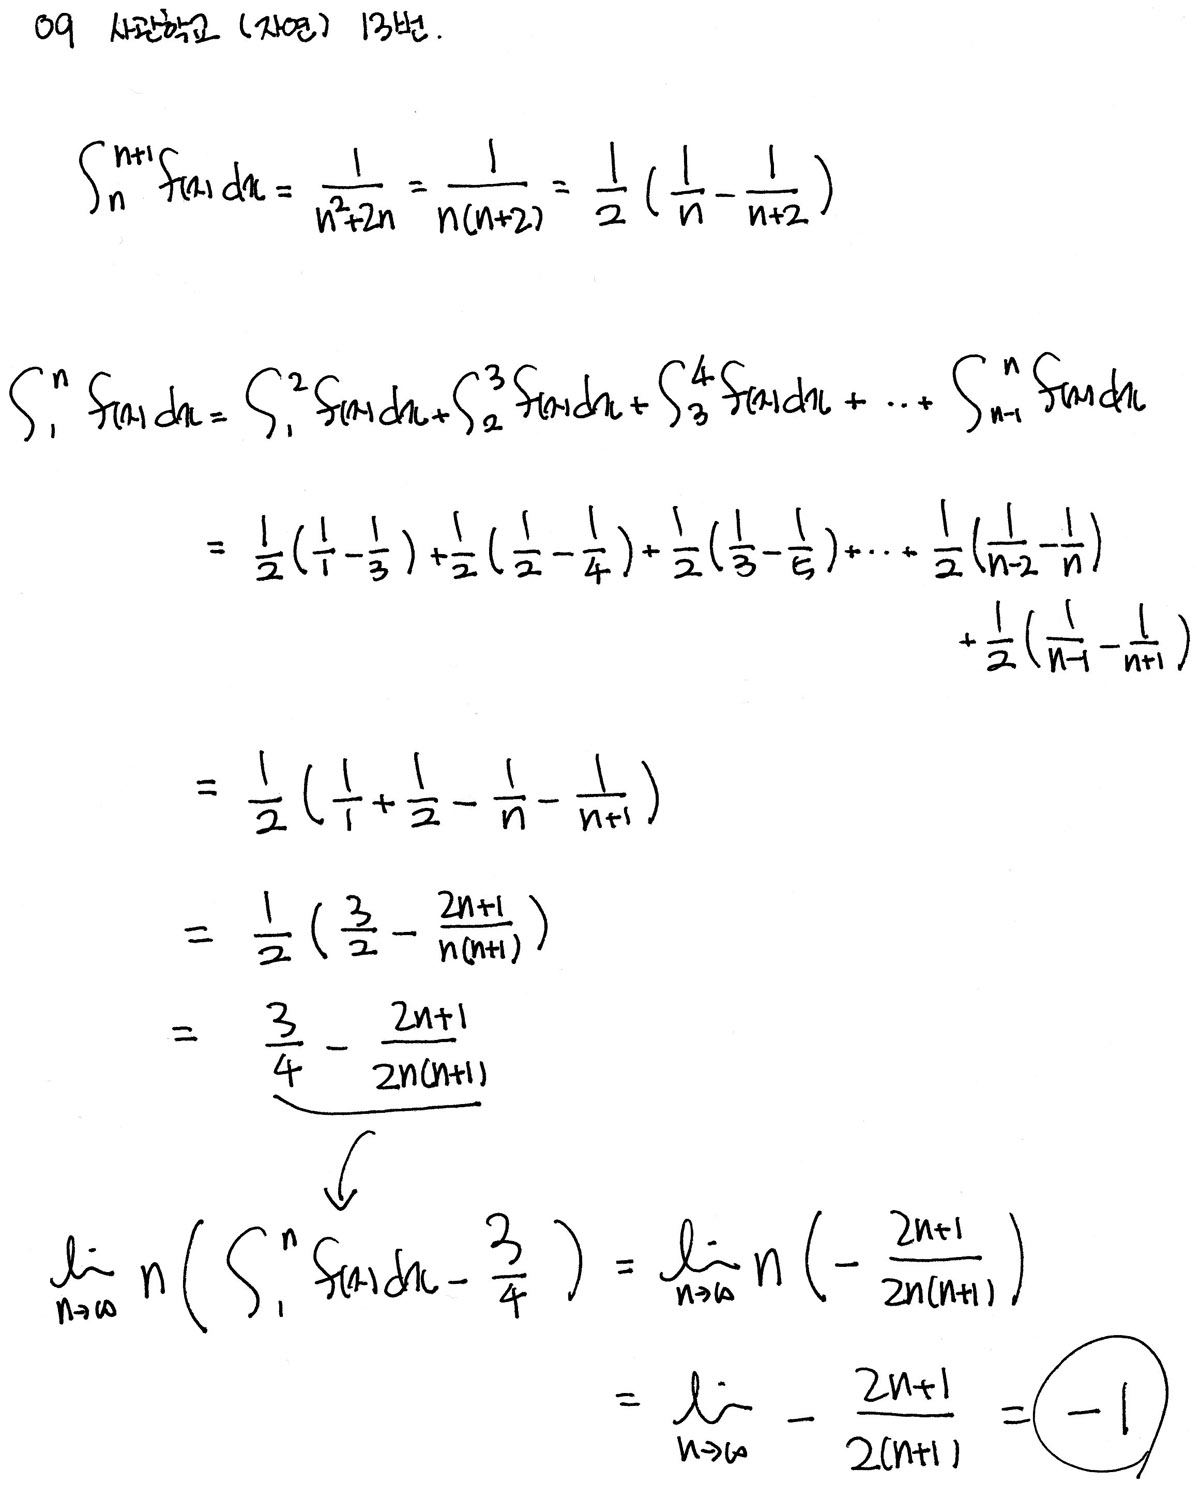 09 사관학교 (자연) 13번.
∫ₙⁿ⁺¹ f(x)dx = 1/(n²+2n) = 1/(n(n+2)) = 1/2 (1/n - 1/(n+2))
∫₁ⁿ f(x)dx = ∫₁² f(x)dx + ∫₂³ f(x)dx + ∫₃⁴ f(x)dx + ··+ ∫ₙ₋₁ⁿ f(x)dx
= 1/2 (1/1 - 1/3) + 1/2 (1/2 - 1/4) + 1/2 (1/3 - 1/5) + ··· + 1/2 (1/(n-2) - 1/n)
+ 1/2 (1/(n-1) - 1/(n+1))
= 1/2 (1/1 + 1/2 - 1/n - 1/(n+1))
= 1/2 (3/2 - (2n+1)/(n(n+1)))
= 3/4 - (2n+1)/(2n(n+1))
lim n→∞ n (∫₁ⁿ f(x)dx - 3/4) = lim n→∞ n (- (2n+1)/(2n(n+1)))
= lim n→∞ - (2n+1)/(2(n+1)) = -1